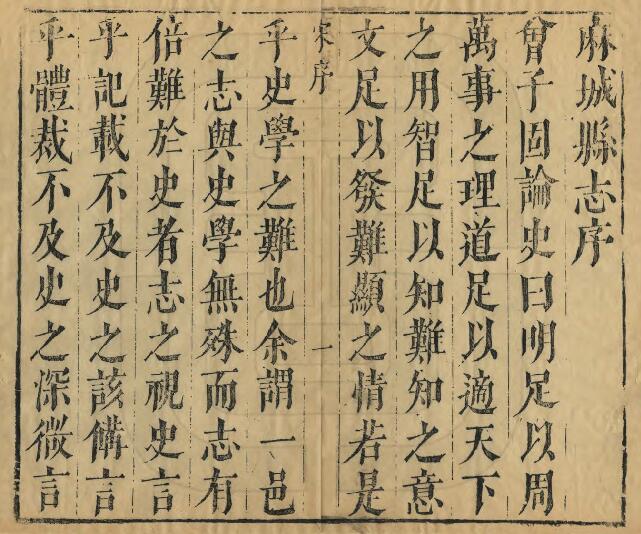 麻城縣志序
曾子固論史曰明足以周
萬事之理道足以適天下
之用智足以知難知之意
文足以發難顯之情若是
宋序 一
乎史學之難也余謂一邑
之志與史學無殊而志有
倍難於史者志之視史言
乎記載不及史之該備言
乎體裁不及史之深微言